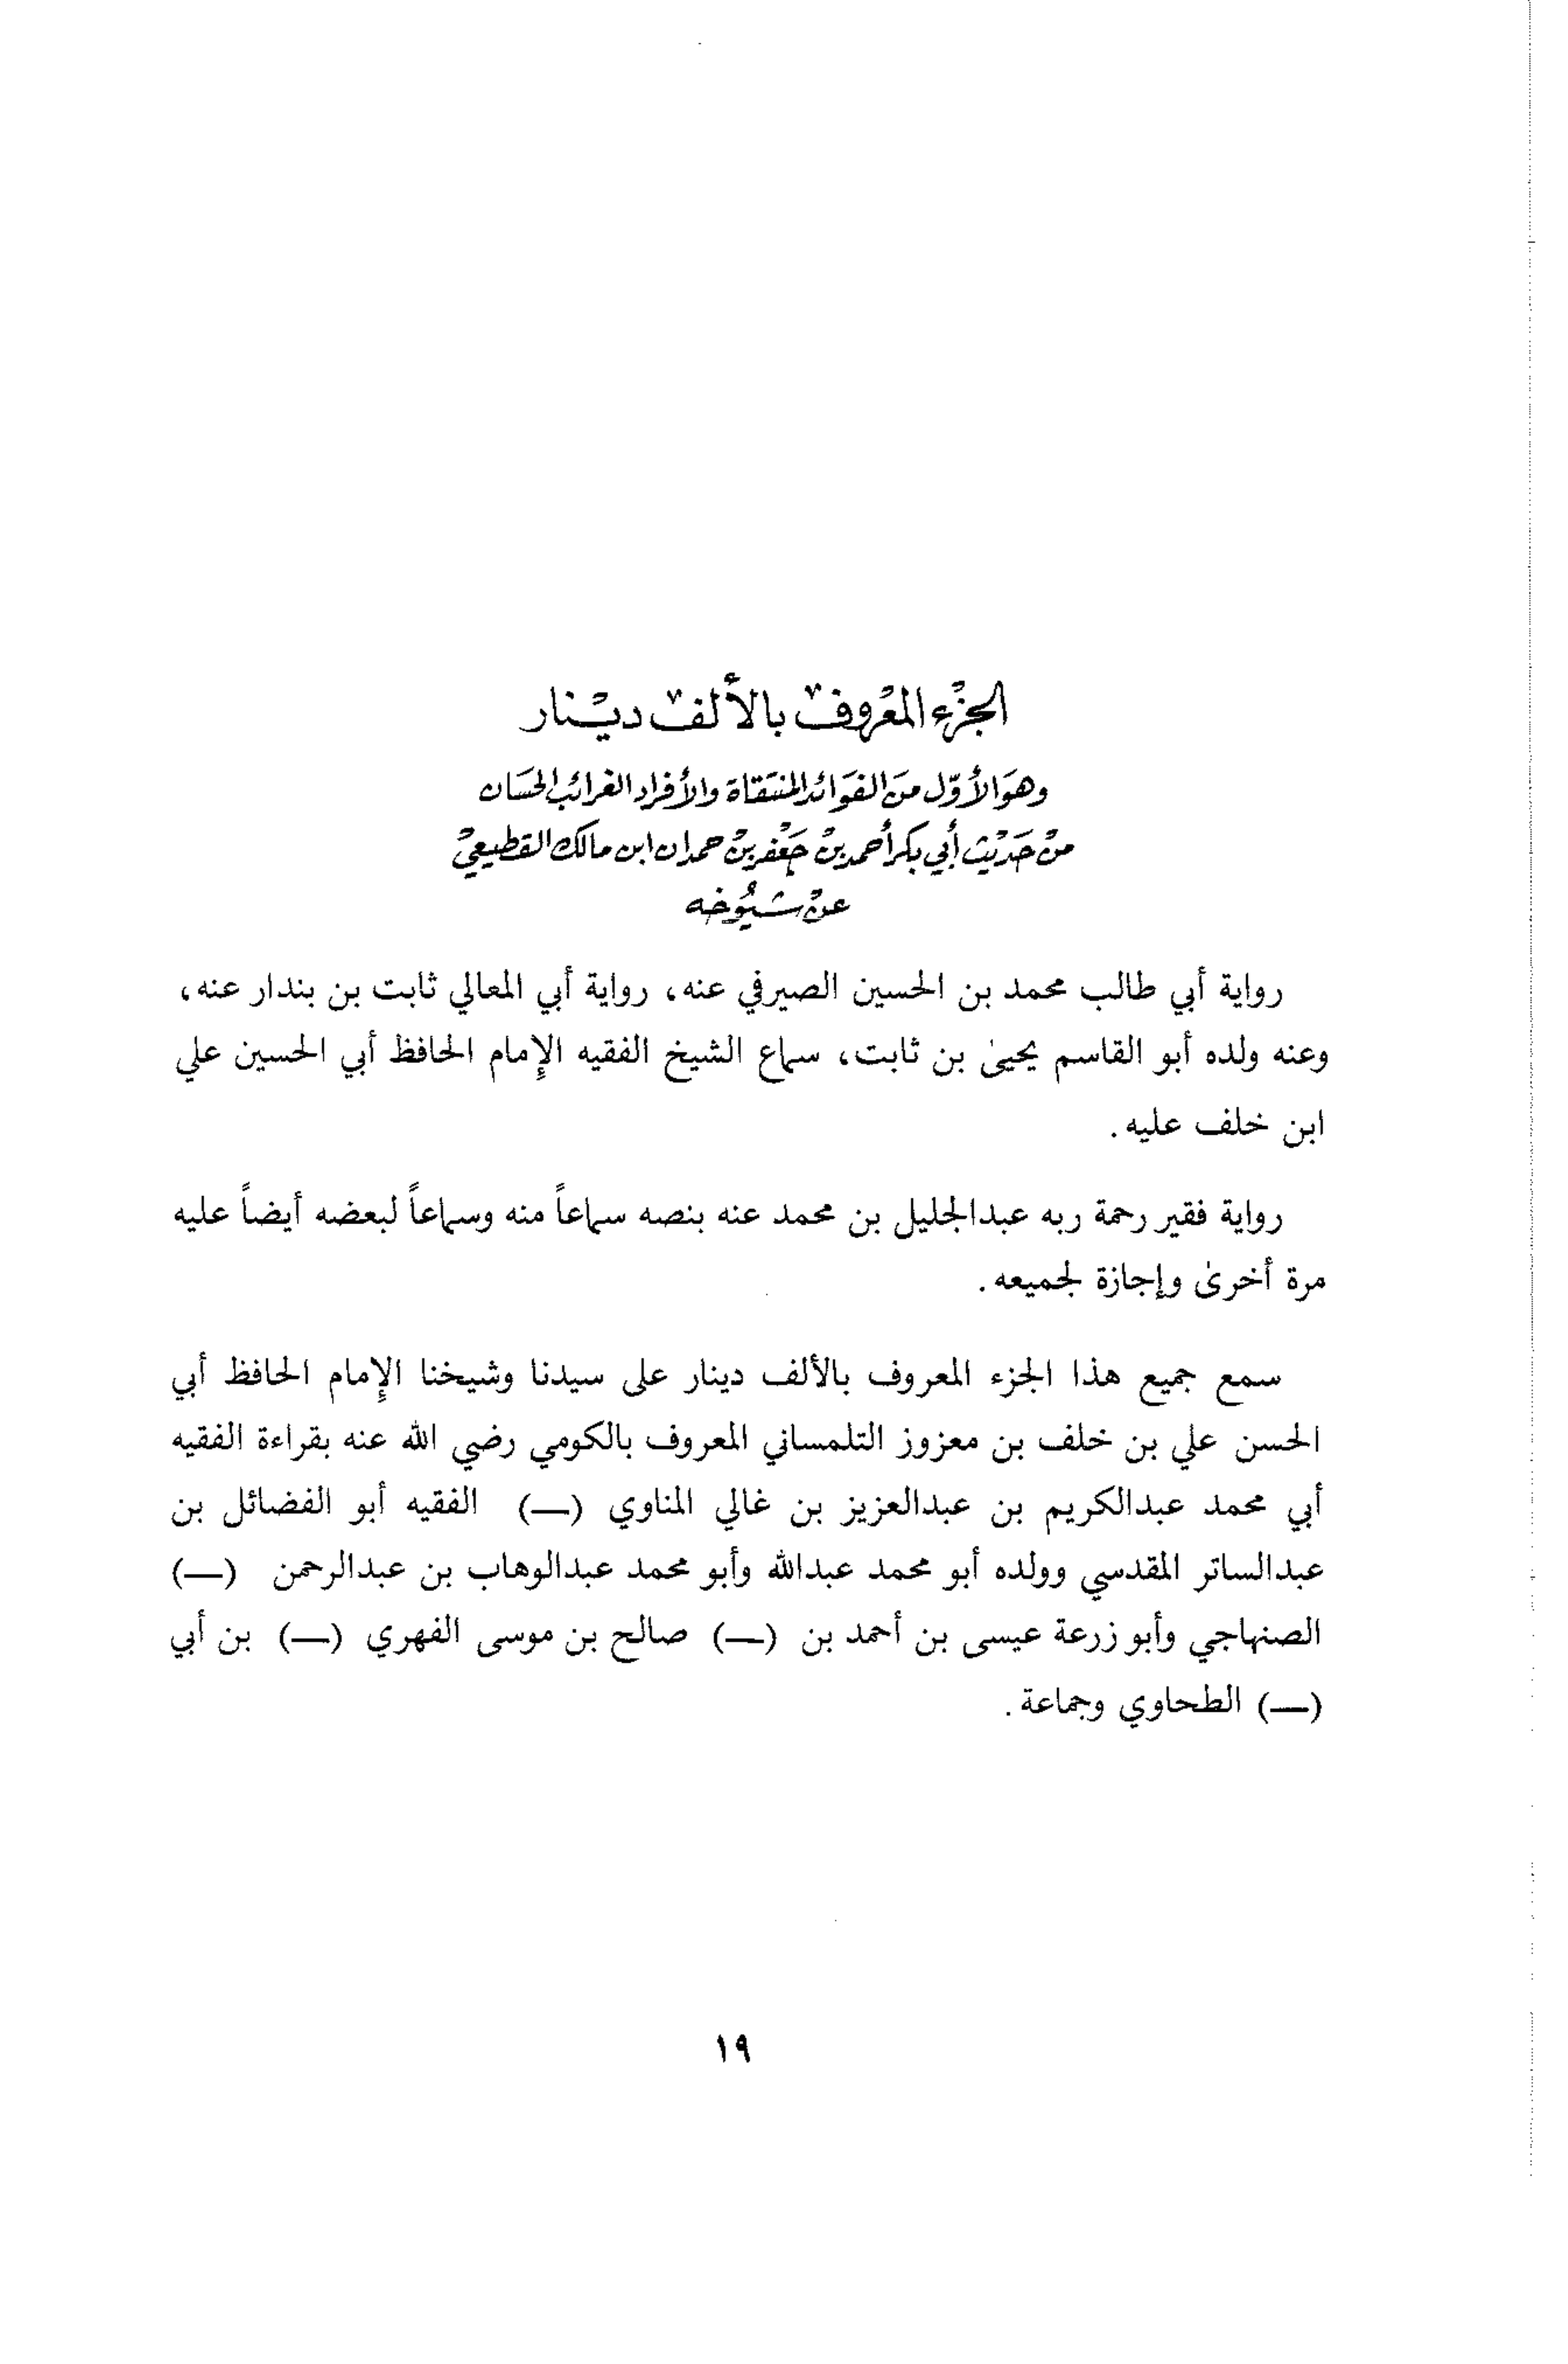 الجزء المعروف بالألف دينار
وهو الأول من الفوائد المنتقاة والأفراد الغرائب الحسان
من حديث أبي بكر أحمد بن جعفر بن حمدان ابن مالك القطيعي
عن شيوخه
رواية أبي طالب محمد بن الحسين الصيرفي عنه، رواية أبي المعالي ثابت بن بندار عنه،
وعنه ولده أبو القاسم يحيىٰ بن ثابت، سماع الشيخ الفقيه الإمام الحافظ أبي الحسين علي
ابن خلف عليه.
رواية فقير رحمة ربه عبدالجليل بن محمد عنه بنصه سماعاً منه وسماعاً لبعضه أيضاً عليه
مرة أخرىٰ وإجازة لجميعه.
سمع جميع هذا الجزء المعروف بالألف دينار على سيدنا وشيخنا الإمام الحافظ أبي
الحسن علي بن خلف بن معزوز التلمساني المعروف بالكومي رضي الله عنه بقراءة الفقيه
أبي محمد عبدالكريم بن عبدالعزيز بن غالي المناوي (—) الفقيه أبو الفضائل بن
عبدالساتر المقدسي وولده أبو محمد عبدالله وأبو محمد عبدالوهاب بن عبدالرحمن (—)
الصنهاجي وأبو زرعة عيسى بن أحمد بن (—) صالح بن موسى الفهري (—) بن أبي
(—) الطحاوي وجماعة.
١٩